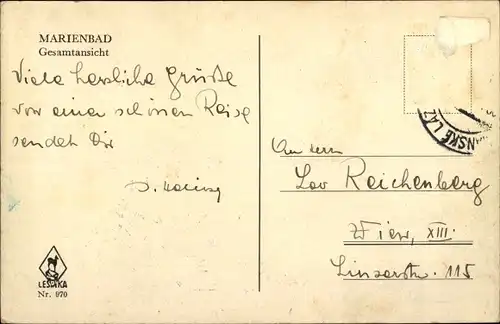 MARIENBAD
Gesamtansicht
Viele herzliche Grüße
von einer schönen Reise
sendet Dir
ANSKÉ LÁZ
An Herrn
Leo Reichenberg
Wien, XIII.
Linzerstr. 115
LESTKA
Nr. 970